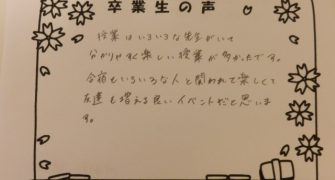 卒業生の声
授業はいろいろな先生がいて
分かりやすく楽しい授業が多かったです。
合宿もいろいろな人と関われて楽しくて
友達も増える良いイベントだと思いま
す。